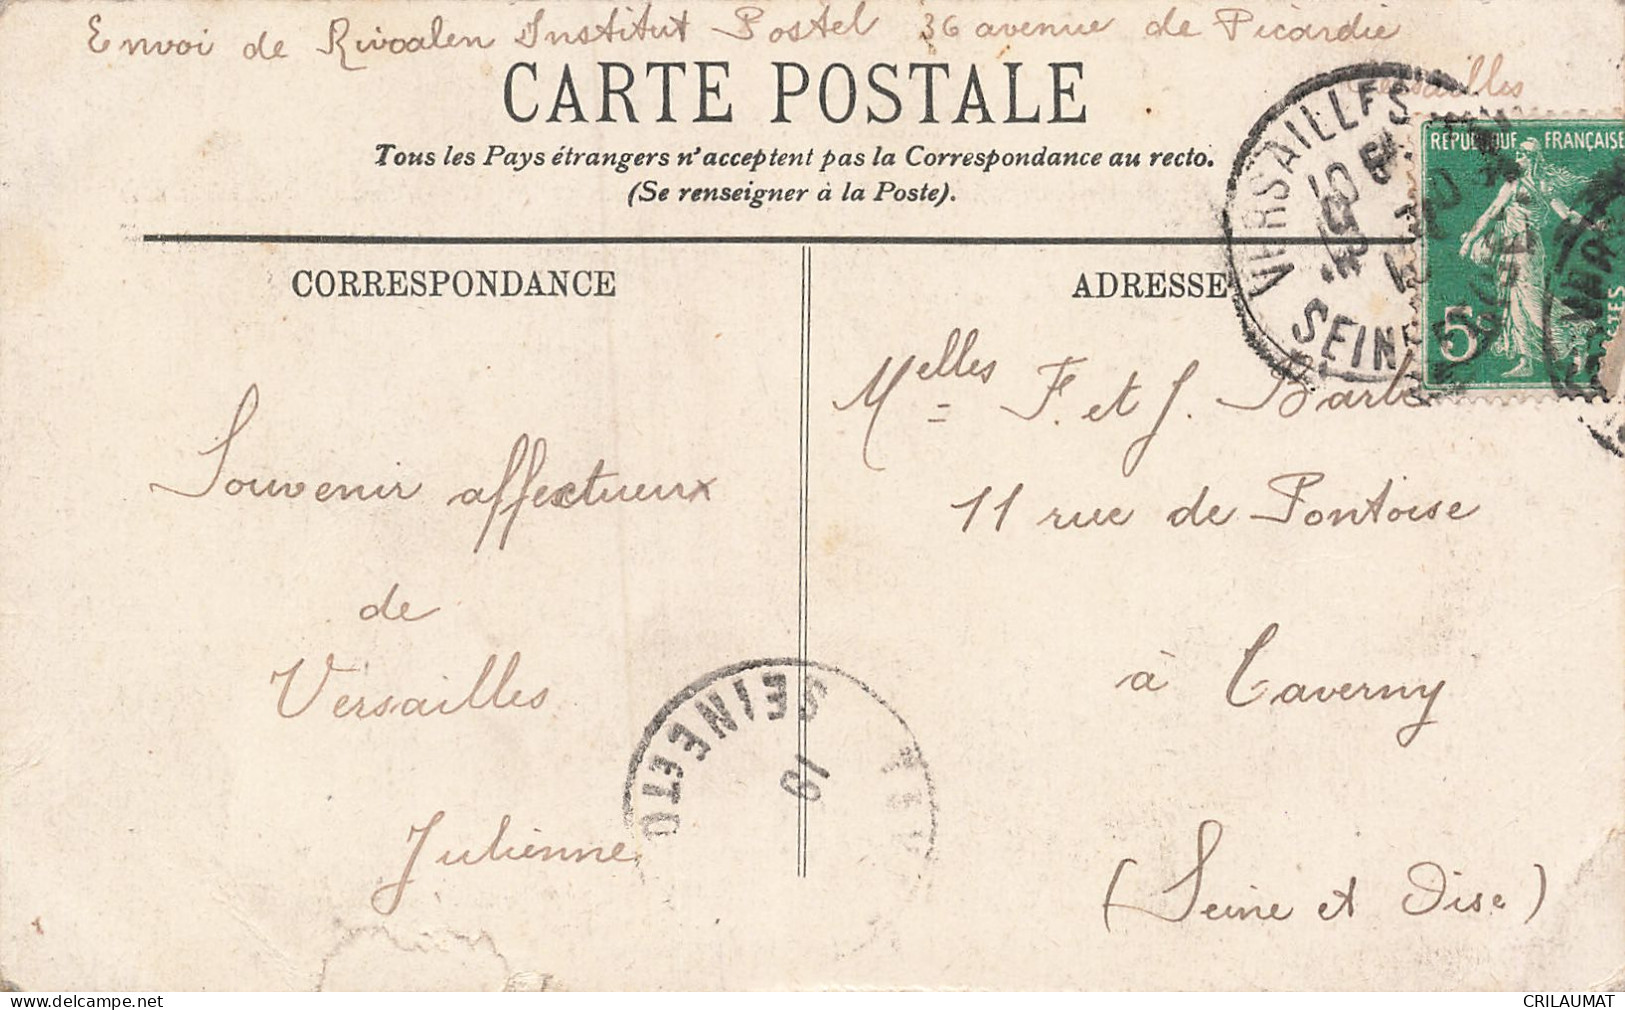 Envoi de Rivoalen Institut Postel 36 avenue de Picardie
Versailles
CARTE POSTALE
Tous les Pays étrangers n'acceptent pas la Correspondance au recto.
(Se renseigner à la Poste).
VERSAILLES
SEINE
RÉPUBLIQUE FRANÇAISE
5
CORRESPONDANCE
ADRESSE
Melles F. et J. Barb
11 rue de Pontoise
à Taverny
(Seine et Oise)
Souvenir affectueux
de
Versailles
Julienne
SEINE ET O
10
CRILAUMAT